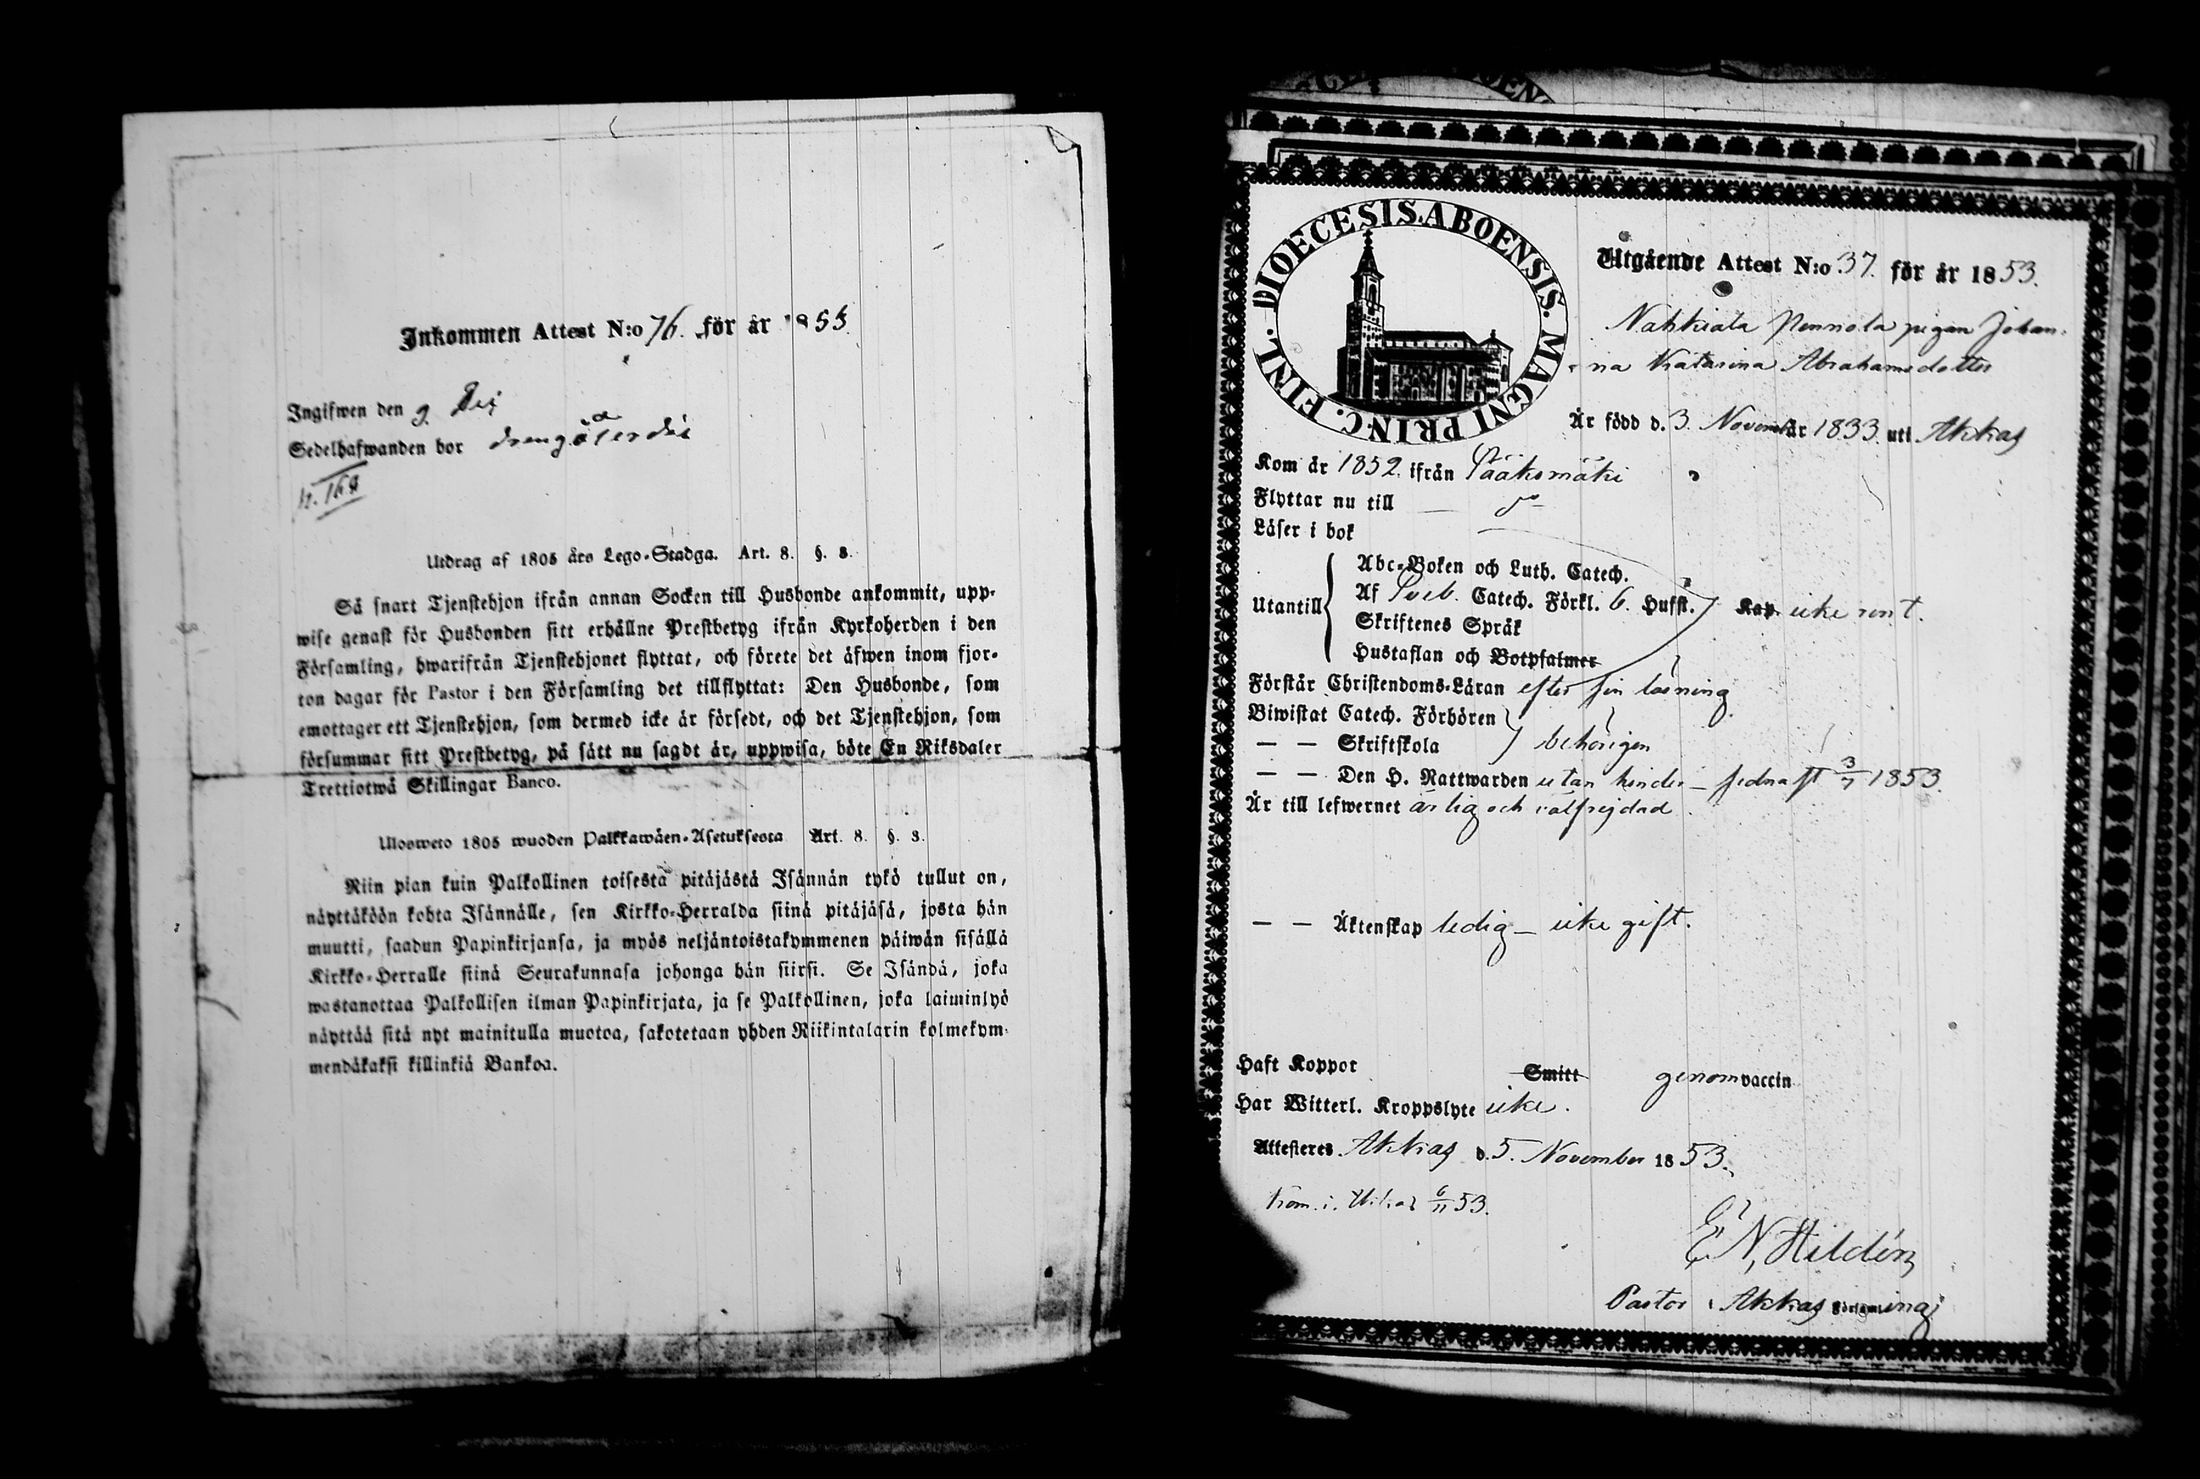 Inkommen Attest N:o 76. för år 1853
Ingifwen den 9
Sedelhafwanden bor
Utdrag af 1805 års Lego-Stadga. Art. 8. §. 3.
Så snart Tjenstehjon ifrån annan Socken till Husbonde ankommit, upp-
wise genast för Husbonden sitt erhållne Prestbetyg ifrån Kyrkoherden i den
Församling, hwarifrån Tjenstehjonet flyttat, och förete det äfwen inom fjor-
ton dagar för Pastor i den Församling det tillflyttat: Den Husbonde, som
emottager ett Tjenstehjon, som dermed icke är försedt, och det Tjenstehjon, som
försummar sitt Prestbetyg, på sätt nu sagdt är, uppwisa, böte En Riksdaler
Trettiotwå Skillingar Banco.
Ulosweto 1805 wuoden Palkkawäen-Asetuksesta Art. 8. §. 3.
Niin pian kuin Palkollinen toisesta pitäjästä Isännän tykö tullut on,
näyttäköön kohta Isännälle, sen Kirkko-Herralda siinä pitäjäsä, josta hän
muutti, saadun Papinkirjansa, ja myös neljäntoistakymmenen päiwän sisällä
Kirkko-Herralle siinä Seurakunnasa johonga hän siirsi. Se Isändä, joka
wastanottaa Palkollisen ilman Papinkirjata, ja se Palkollinen, joka laiminlyö
näyttää sitä nyt mainitulla muotoa, sakotetaan yhden Riikintalarin kolmekym-
mendäkaksi killinkiä Bankoa.
DIOECESIS. ABOENSIS. MAGNI PRINC. FINL.
Utgående Attest N:o 37. för år 1853.
Nahkiala Pennola pigan Johan-
na Katarina Abrahamsdotter
Är född d. 3 Novemb år 1833 uti Akkas
Kom år 1852 ifrån Sääksmäki
Flyttar nu till
Läser i bok
Abc-Boken och Luth. Catech.
Utantill Af Sveb. Catech. Förkl. 6. Hufst. Kap. icke rent.
Skriftenes Språk
Hustaflan och Botpsalmer
Förstår Christendoms-Läran efter sin läsning
Biwistat Catech. Förhören
— — Skriftskola behörigen
— — Den H. Nattwarden utan hinder — sednast 3/7 1853.
Är till lefwernet ärlig och välfrejdad
— — Äktenskap ledig — icke gift.
Haft Koppor Smitt genom vaccin
Har Witterl. Kroppslyte icke.
Attesteres Akkas d. 5. November 1853.
Kom. i 6/11 53.
E. N. Hildén
Pastor i Akkas Församling